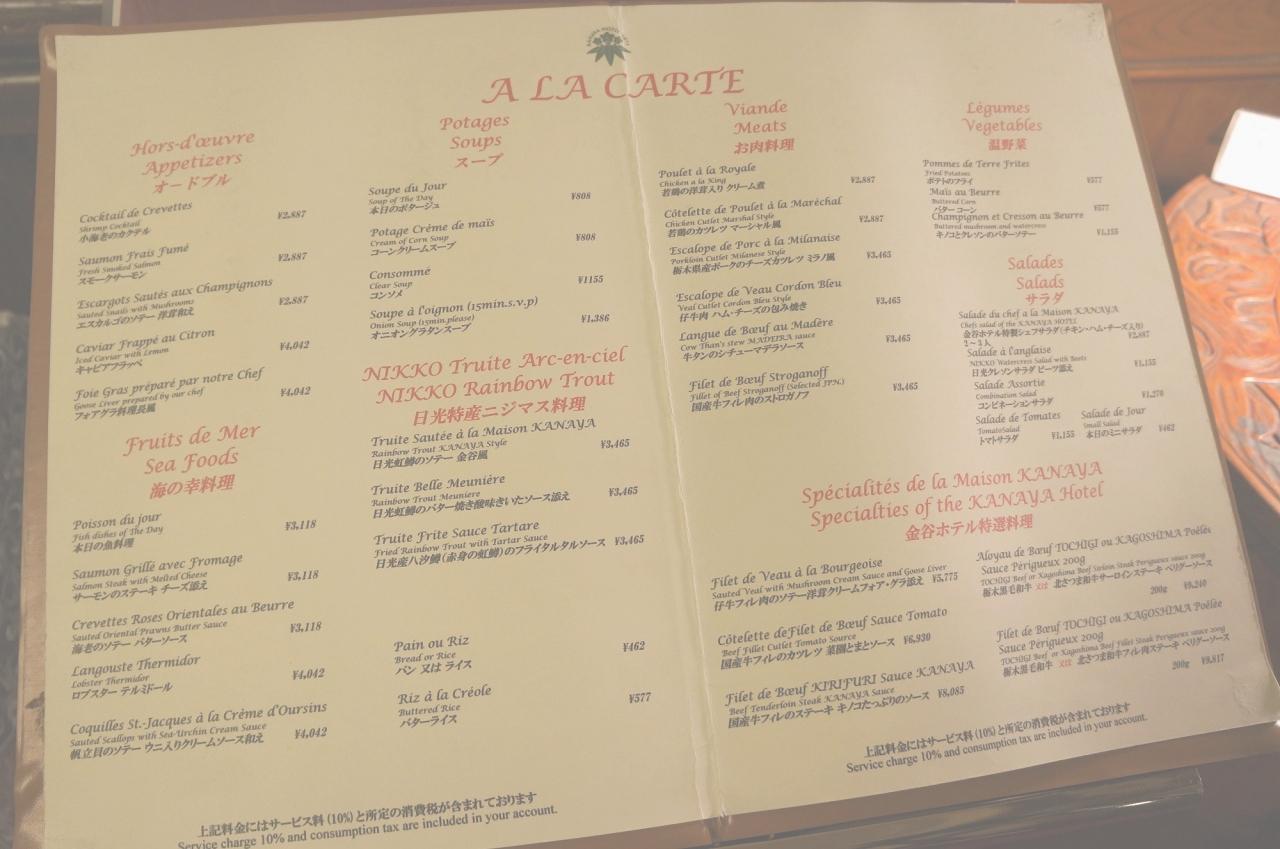 A LA CARTE
Hors-d'œuvre
Appetizers
オードブル
Cocktail de Crevettes
Shrimp Cocktail ¥2,887
小海老のカクテル
Saumon Frais Fumé
Fresh Smoked Salmon ¥2,887
スモークサーモン
Escargots Sautés aux Champignons
Sauted Snails with Mushrooms ¥2,887
エスカルゴのソテー 洋茸和え
Caviar Frappé au Citron
Iced Caviar with Lemon ¥4,042
キャビアフラッペ
Foie Gras préparé par notre Chef
Goose Liver prepared by our chef ¥4,042
フォアグラ料理長風
Fruits de Mer
Sea Foods
海の幸料理
Poisson du jour
Fish dishes of The Day ¥3,118
本日の魚料理
Saumon Grillé avec Fromage
Salmon Steak with Melted Cheese ¥3,118
サーモンのステーキ チーズ添え
Crevettes Roses Orientales au Beurre
Sauted Oriental Prawns Butter Sauce ¥3,118
海老のソテー バターソース
Langouste Thermidor
Lobster Thermidor ¥4,042
ロブスター テルミドール
Coquilles St.-Jacques à la Crème d'Oursins
Sauted Scallops with Sea-Urchin Cream Sauce ¥4,042
帆立貝のソテー ウニ入りクリームソース和え
上記料金にはサービス料(10%)と所定の消費税が含まれております
Service charge 10% and consumption tax are included in your account.
Potages
Soups
スープ
Soupe du Jour
Soup of The Day ¥808
本日のポタージュ
Potage Crème de maïs
Cream of Corn Soup ¥808
コーンクリームスープ
Consommé
Clear Soup ¥1155
コンソメ
Soupe à l'oignon (15min.s.v.p)
Onion Soup (15min.please) ¥1,386
オニオングラタンスープ
NIKKO Truite Arc-en-ciel
NIKKO Rainbow Trout
日光特産ニジマス料理
Truite Sautée à la Maison KANAYA
Rainbow Trout KANAYA Style ¥3,465
日光虹鱒のソテー 金谷風
Truite Belle Meunière
Rainbow Trout Meuniere ¥3,465
日光虹鱒のバター焼き酸味きいたソース添え
Truite Frite Sauce Tartare
Fried Rainbow Trout with Tartar Sauce ¥3,465
日光産八汐鱒(赤身の虹鱒)のフライタルタルソース
Pain ou Riz
Bread or Rice ¥462
パン 又は ライス
Riz à la Créole
Buttered Rice ¥577
バターライス
Viande
Meats
お肉料理
Poulet à la Royale
Chicken a la King ¥2,887
若鶏の洋茸入り クリーム煮
Côtelette de Poulet à la Maréchal
Chicken Cutlet Marshal Style ¥2,887
若鶏のカツレツ マーシャル風
Escalope de Porc à la Milanaise
Porkloin Cutlet Milanese Style ¥3,465
栃木県産ポークのチーズカツレツ ミラノ風
Escalope de Veau Cordon Bleu
Veal Cutlet Cordon Bleu Style ¥3,465
仔牛肉 ハム・チーズの包み焼き
Langue de Bœuf au Madère
Cow Than's stew MADEIRA sauce ¥3,465
牛タンのシチューマデラソース
Filet de Bœuf Stroganoff
Fillet of Beef Stroganoff (Selected JPN.) ¥3,465
国産牛フィレ肉のストロガノフ
Légumes
Vegetables
温野菜
Pommes de Terre Frites
Fried Potatoes ¥577
ポテトのフライ
Maïs au Beurre
Buttered Corn ¥577
バター コーン
Champignon et Cresson au Beurre
Buttered mushroom and watercress ¥1,155
キノコとクレソンのバターソテー
Salades
Salads
サラダ
Salade du chef a la Maison KANAYA
Chefs salad of the KANAYA HOTEL
金谷ホテル特製シェフサラダ(チキン・ハム・チーズ入り)
2~3人 ¥2,887
Salade à l'anglaise
NIKKO Watercress Salad with Beets ¥1,155
日光クレソンサラダ ビーツ添え
Salade Assortie
Combination Salad ¥1,270
コンビネーションサラダ
Salade de Tomates
TomatoSalad
トマトサラダ ¥1,155
Salade de Jour
Small Salad
本日のミニサラダ ¥462
Spécialités de la Maison KANAYA
Specialties of the KANAYA Hotel
金谷ホテル特選料理
Filet de Veau à la Bourgeoise
Sauted Veal with Mushroom Cream Sauce and Goose Liver
仔牛フィレ肉のソテー洋茸クリームフォア・グラ添え ¥5,775
Côtelette deFilet de Bœuf Sauce Tomato
Beef Fillet Cutlet Tomato Source
国産牛フィレのカツレツ 菜園とまとソース ¥6,930
Filet de Bœuf KIRIFURI Sauce KANAYA
Beef Tenderloin Steak KANAYA Sauce
国産牛フィレのステーキ キノコたっぷりのソース ¥8,085
Aloyau de Bœuf TOCHIGI ou KAGOSHIMA Poêlés
Sauce Périgueux 200g
TOCHIGI Beef or Kagoshima Beef Sirloin Steak Perigueux sauce 200g
栃木黒毛和牛 又は 北さつま和牛サーロインステーキ ペリゲーソース
200g ¥9,240
Filet de Bœuf TOCHIGI ou KAGOSHIMA Poêlée
Sauce Périgueux 200g
TOCHIGI Beef or Kagoshima Beef Fillet Steak Perigueux sauce 200g
栃木黒毛和牛 又は 北さつま和牛フィレ肉ステーキ ペリゲーソース
200g ¥9,817
上記料金にはサービス料(10%)と所定の消費税が含まれております
Service charge 10% and consumption tax are included in your account.